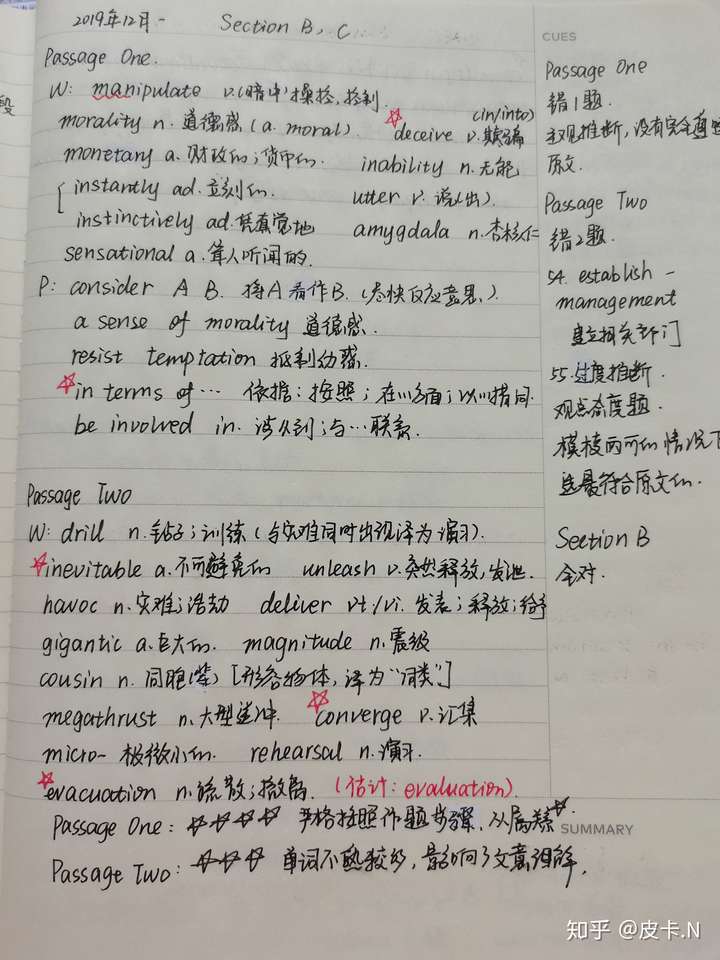 2019年12月- Section B, C
CUES
Passage One.
W: manipulate v.(暗中)操控,控制
morality n. 道德感(a. moral). deceive v.欺骗 (in/into)
monetary a. 财政的;货币的. inability n.无能
instantly ad.立刻的 utter v. 说(出)
instinctively ad.凭直觉地 amygdala n.杏核仁
sensational a.耸人听闻的.
P: consider A B. 将A看作B.(尽快反应意思.)
a sense of morality 道德感.
resist temptation 抵制动惑.
in terms of … 依据:按照;在…方面;以…措词
be involved in. 涉及到;与…联系.
Passage Two
W: drill n.钻子;训练(与灾难同时出现译为演习).
inevitable a.不可避免的 unleash v.突然释放,发泄.
havoc n.灾难;浩劫 deliver vt./vi. 发表;释放;给予
gigantic a.巨大的. magnitude n.震级
cousin n. 同胞(辈) [形容物体,译为“同类”]
megathrust n.大型逆冲. converge v.汇集
micro- 极微小的. rehearsal n.演习.
evacuation n.疏散;撤离. (估计: evaluation)
Passage One: 严格按照作题步骤,
Passage Two: 单词不熟较多,影响了文意理解,
Passage One
错1题.
主观推断,没有完全
原文.
Passage Two
错2题.
54. establish -
management
建立相关部门
55.过度推断.
观点态度题.
模棱两可的情况下
选最符合原文的.
Section B
全对.
SUMMARY
知乎 @皮卡.N
段